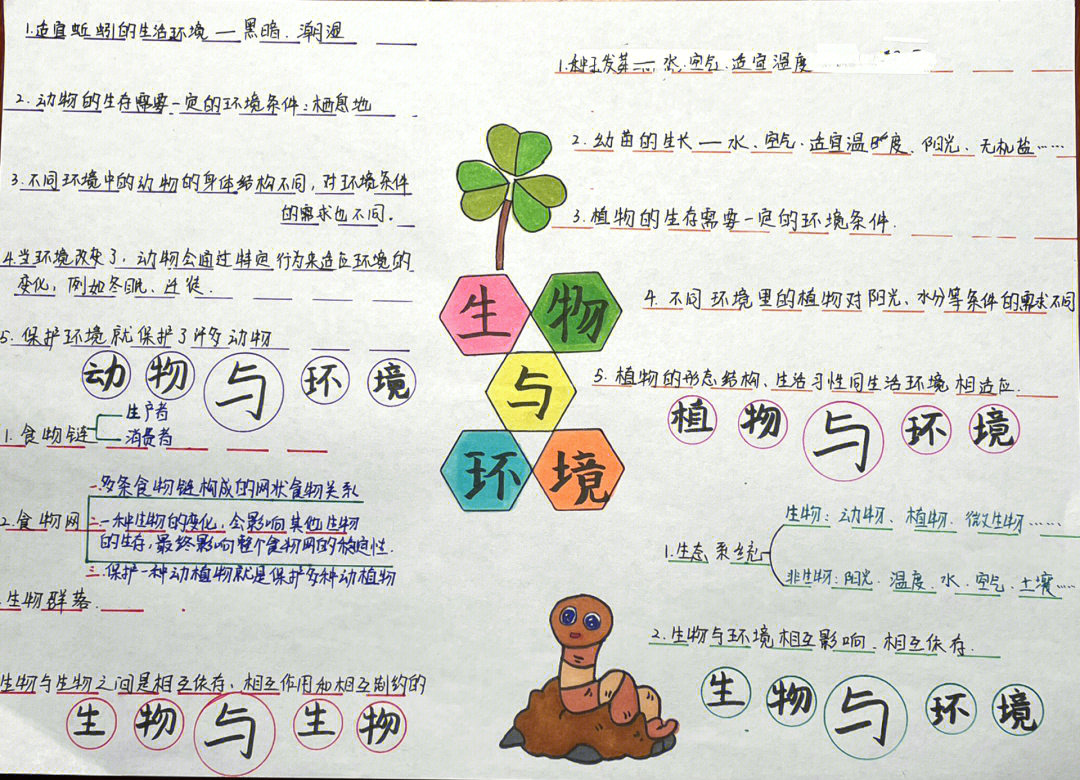 1.适宜蚯蚓的生活环境一黑暗、潮湿
2.动物的生存需要一定的环境条件:栖息地
3.不同环境中的动物的身体结构不同,对环境条件
的需求也不同。
4.当环境改变了,动物会通过特定行为来适应环境的
变化,例如冬眠、迁徙.
5.保护环境就保护了许多动物
动物与环境
1.食物链
生产者
消费者
2.食物网
一.多条食物链构成的网状食物关系
二.一种生物的变化,会影响其他生物
的生存,最终影响整个食物网的稳定性.
三.保护一种动植物就是保护多种动植物
.生物群落.
生物与生物之间是相互依存、相互作用和相互制约的
生物与生物
生物
与
环境
1.种子发芽一水、空气、适宜温度
2.幼苗的生长一水、空气、适宜温度、阳光、无机盐……
3.植物的生存需要一定的环境条件.
4.不同环境里的植物对阳光、水分等条件的需求不同
5.植物的形态结构、生活习性同生活环境相适应.
植物与环境
1.生态系统
生物:动物、植物、微生物……
非生物:阳光、温度、水、空气、土壤……
2.生物与环境相互影响、相互依存.
生物与环境